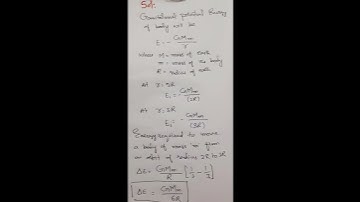 Sol:
Gravitational potential Energy
of body will be
E = - GMm/r
where M = mass of earth
m = mass of the body
R = radius of earth
At r = 2R
E₁ = - GMm/(2R)
At r = 3R
E₂ = - GMm/(3R)
Energy required to move
a body of mass m from
an orbit of radius 2R to 3R
ΔE = GMm/R [1/2 - 1/3]
ΔE = GMm/6R